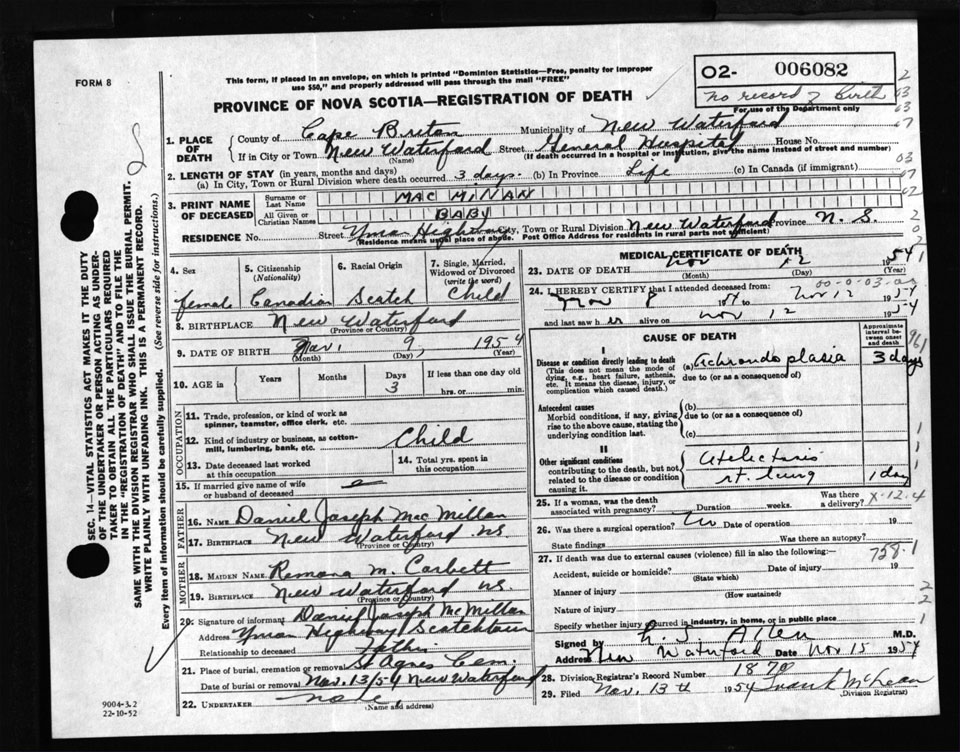 FORM 8
This form, if placed in an envelope, on which is printed "Dominion Statistics—Free, penalty for improper
use $50," and properly addressed will pass through the mail "FREE"
O2- 006082
no record of Birth
For use of the Department only
PROVINCE OF NOVA SCOTIA—REGISTRATION OF DEATH
1. PLACE OF DEATH
County of Cape Breton Municipality of New Waterford
If in City or Town New Waterford Street General Hospital House No.
(Name) (If death occurred in a hospital or institution, give the name instead of street and number)
2. LENGTH OF STAY (in years, months and days)
(a) In City, Town or Rural Division where death occurred 3 days. (b) In Province Life (c) In Canada (if immigrant)
3. PRINT NAME OF DECEASED
Surname or Last Name MAC MILLAN
All Given or Christian Names BABY
RESIDENCE No. Street Highway City, Town or Rural Division New Waterford Province N. S.
(Residence means usual place of abode. Post Office Address for residents in rural parts not sufficient)
4. Sex female
5. Citizenship (Nationality) Canadian
6. Racial Origin Scotch
7. Single, Married, Widowed or Divorced (write the word) Child
8. BIRTHPLACE New Waterford
(Province or Country)
9. DATE OF BIRTH Nov. 9, 1954
(Month) (Day) (Year)
10. AGE in Years Months Days 3 If less than one day old hrs. or min.
OCCUPATION
11. Trade, profession, or kind of work as spinner, teamster, office clerk, etc.
12. Kind of industry or business, as cotton-mill, lumbering, bank, etc. Child
13. Date deceased last worked at this occupation
14. Total yrs. spent in this occupation
15. If married give name of wife or husband of deceased
FATHER
16. Name Daniel Joseph Mac Millan
17. Birthplace New Waterford N.S.
(Province or Country)
MOTHER
18. Maiden Name. Remona M. Corbett
19. Birthplace New Waterford N.S.
(Province or Country)
20. Signature of informant Daniel Joseph McMillan
Address Highway Scotchtown
Relationship to deceased Father
21. Place of burial, cremation or removal St Agnes Cem.
Date of burial or removal Nov. 13/54 New Waterford
22. UNDERTAKER none
(Name and address)
MEDICAL CERTIFICATE OF DEATH
23. DATE OF DEATH Nov 12 1954
(Month) (Day) (Year)
00-0-03-00
24. I HEREBY CERTIFY that I attended deceased from:
Nov 8 1954 Nov 12 1954
and last saw her alive on Nov 12 1954
CAUSE OF DEATH
Approximate interval between onset and death
Disease or condition directly leading to death (a) Achrondoplasia 3 days
(This does not mean the mode of dying, e.g., heart failure, asthenia, etc. It means the disease, injury, or complication which caused death.)
due to (or as a consequence of)
Antecedent causes
Morbid conditions, if any, giving rise to the above cause, stating the underlying condition last.
(b)
due to (or as a consequence of)
(c)
II
Other significant conditions contributing to the death, but not related to the disease or condition causing it.
Atelectasis rt. lung 1 day
25. If a woman, was the death associated with pregnancy? Duration weeks. Was there a delivery?
X-12.4
26. Was there a surgical operation? Date of operation 19
State findings Was there an autopsy?
758.1
27. If death was due to external causes (violence) fill in also the following:—
Accident, suicide or homicide? Date of injury 19
(State which)
Manner of injury
(How sustained)
Nature of injury
Specify whether injury occurred in industry, in home, or in public place
Signed by Allen M.D.
Address New Waterford Date Nov 15 1954
28. Division Registrar's Record Number 1870
29. Filed Nov. 13th 1954 Frank McLean
(Division Registrar)
9004-3.2
22-10-52
SEC. 14—VITAL STATISTICS ACT MAKES IT THE DUTY
OF THE UNDERTAKER OR PERSON ACTING AS UNDER-
TAKER TO OBTAIN ALL THE PARTICULARS REQUIRED
IN THE "REGISTRATION OF DEATH" AND TO FILE THE
SAME WITH THE DIVISION REGISTRAR WHO SHALL ISSUE THE BURIAL PERMIT.
WRITE PLAINLY WITH UNFADING INK. THIS IS A PERMANENT RECORD.
Every item of information should be carefully supplied. (See reverse side for instructions.)